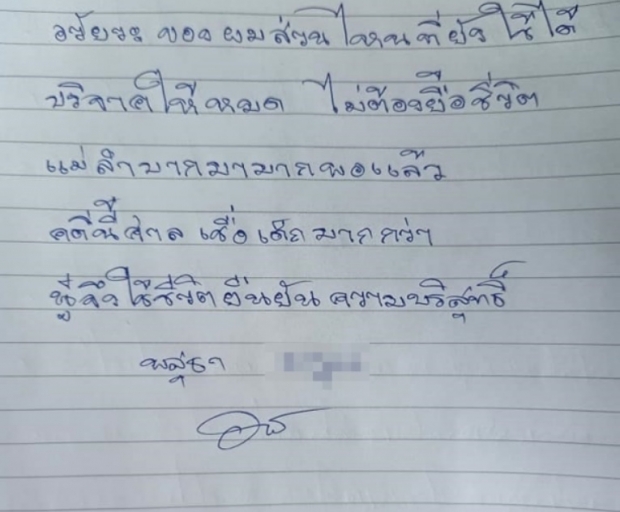 อวัยวะ ของ ผมส่วนไหนที่ยังใช้ได้
บริจาคให้หมด ไม่ต้องยื้อชีวิต
แม่ลำบากมามากพอแล้ว
คดีนี้ศาล เชื่อเด็กมากกว่า
จึงใช้ชีวิตยืนยัน ความบริสุทธิ์
พสุธา